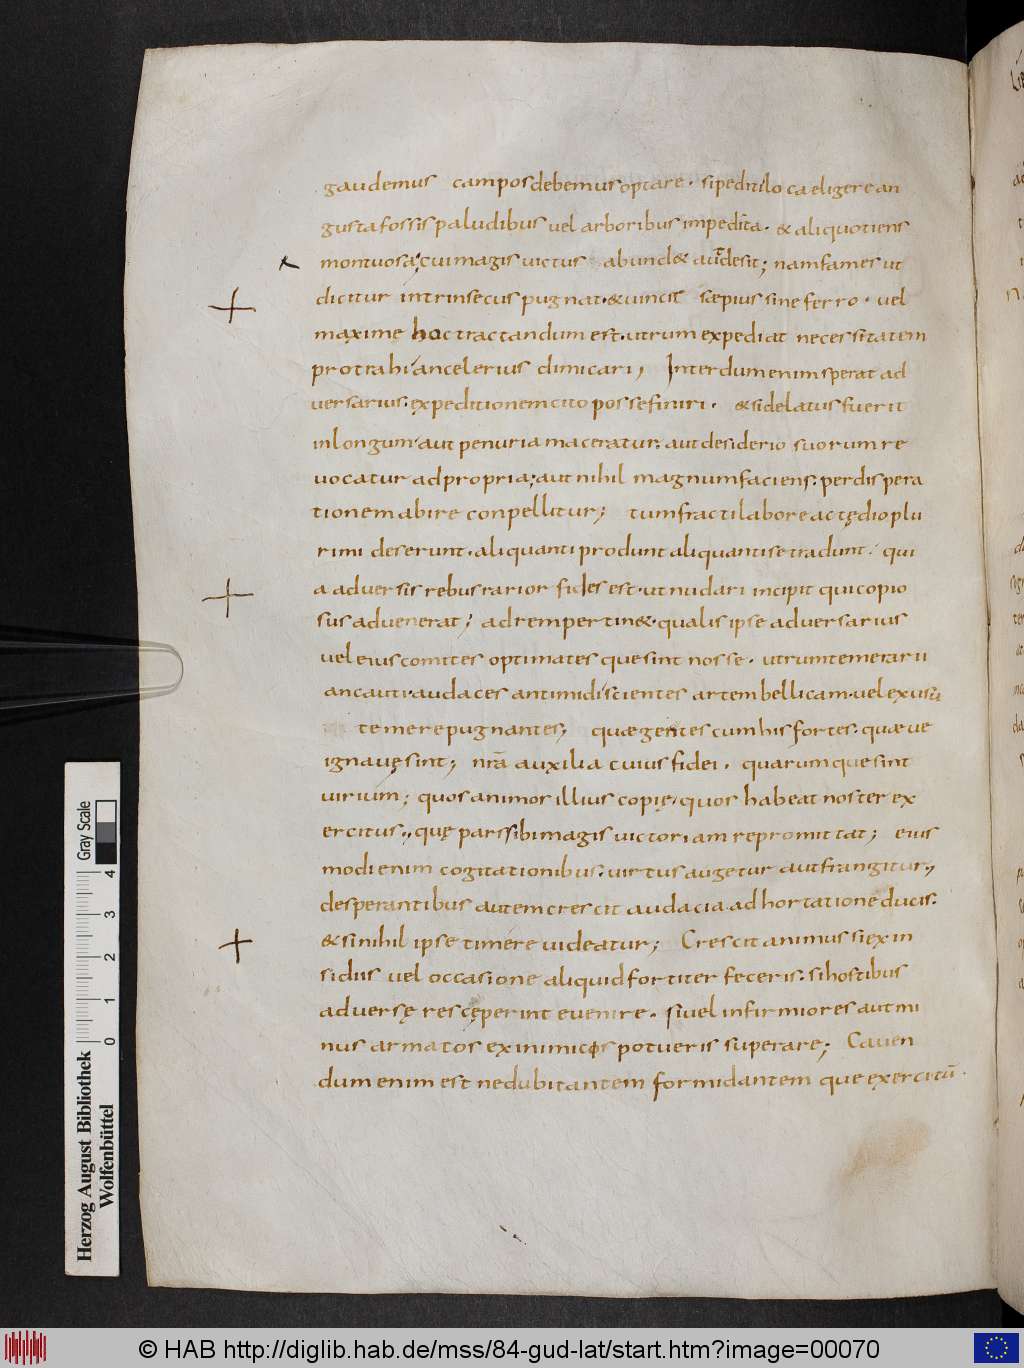 gaudemus campos debemus optare. si peditilo ca eligere an
gusta fossis paludibus vel arboribus impedita. & aliquotiens
montuosa; cui magis victus abund& aut desit; nam fames ut
dicitur intrinsecus pugnat. & vincit sæpius sine ferro. vel
maxime hoc tractandum est. utrum expediat necessitatem
protrahi an celerius dimicari; Interdum enim sperat ad
versarius. expeditionem cito posse finiri. & si delatus fuerit
in longum. aut penuria maceratur. aut desiderio suorum re
vocatur ad propria; aut nihil magnum faciens. per dispera
tionem abire conpellitur; tum fracti labore ac tędio plu
rimi deserunt. aliquanti produnt aliquanti se tradunt. qui
a adversis rebus rarior fides est. ut nudari incipit qui copio
sus advenerat; ad rem pertin&. qualis ipse adversarius
vel eius comites optimates que sint nosse. utrum temerarii
an cauti. audaces an timidi scientes artem bellicam. vel ex usu
temere pugnantes; quæ gentes cum his fortes. quæ ve
ignavę sint; nrā auxilia cuius fidei. quarum que sint
virium; quos animos illius copię. quos habeat noster ex
ercitus., quę pars sibi magis victoriam repromittat; eius
modi enim cogitationibus. virtus augetur aut frangitur.,
desperantibus autem crescit audacia adhortatione ducis.
& si nihil ipse timere videatur; Crescit animus si ex in
sidiis vel occasione aliquid fortiter feceris. si hostibus
adversę res cęperint evenire. si vel infirmiores aut mi
nus armatos ex inimicos potueris superare; Caven
dum enim est ne dubitantem formidantem que exercitū.
Gray Scale
0 1 2 3 4
Herzog August Bibliothek
Wolfenbüttel
© HAB http://diglib.hab.de/mss/84-gud-lat/start.htm?image=00070